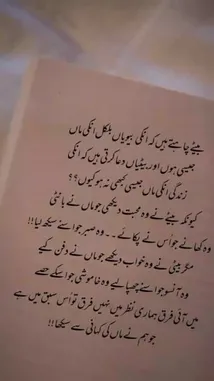 بیٹے چاہتے ہیں کہ انکی بیویاں بلکل انکی ماں
جیسی ہوں اور بیٹیاں دعا کرتی ہیں کہ انکی
زندگی انکی ماں جیسی کبھی نہ ہو کیوں؟؟
کیونکہ بیٹے نے وہ محبت دیکھی جو ماں نے بانٹی
وہ کھانے جو اُس نے پکائے۔۔ وہ صبر جو اسنے سیکھ لیا!!
مگر بیٹی نے وہ خواب دیکھے جو ماں نے دفن کیے
وہ آنسو جو اسنے چھپا لیے وہ خاموشی جو اسکے حصے
میں آئی فرق ہماری نظر میں نہیں فرق تو اُس سبق میں ہے
جو ہم نے ماں کی کہانی سے سیکھا!!